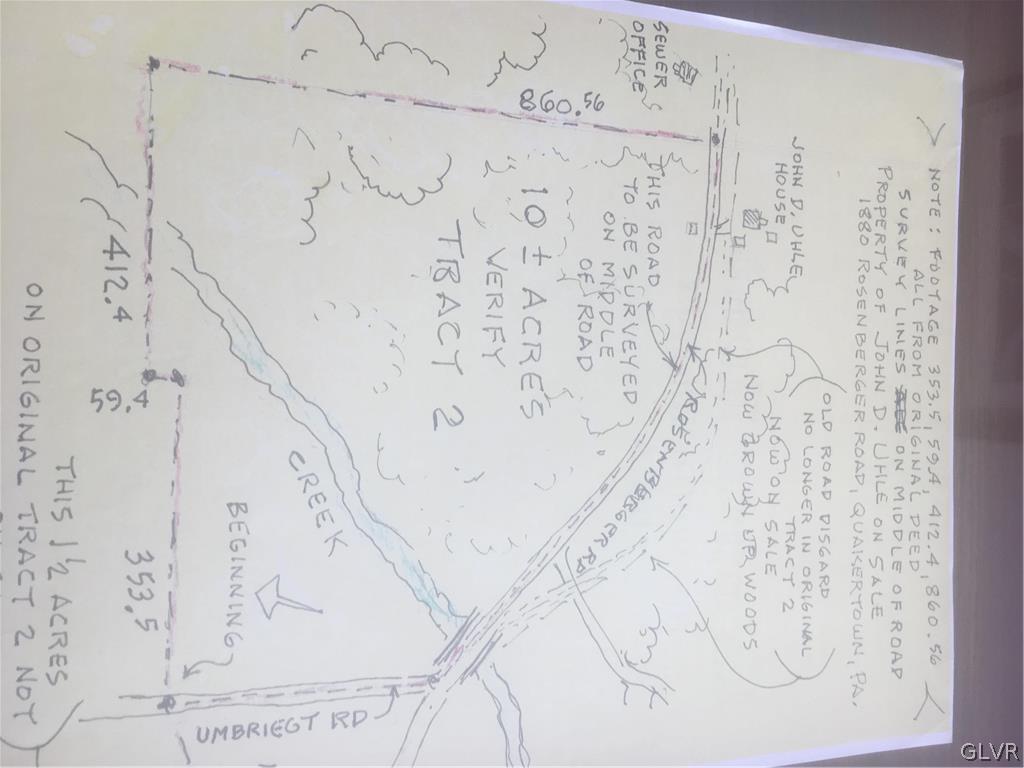 NOTE: FOOTAGE 353.5, 59.4, 412.4, 860.56
ALL FROM ORIGINAL DEED
SURVEY LINES ON MIDDLE OF ROAD
PROPERTY OF JOHN D. UHLE ON SALE
1880 ROSENBERGER ROAD, QUAKERTOWN, PA.
SEWER
OFFICE
JOHN D. UHLE
HOUSE
OLD ROAD DISGARD
NO LONGER IN ORIGINAL
TRACT 2
NOW ON SALE
NOW GROWN UP WOODS
ROSENBERGER RD
THIS ROAD
TO BE SURVEYED
ON MIDDLE
OF ROAD
860.56
10 ± ACRES
VERIFY
TRACT 2
CREEK
BEGINNING
UMBRIEGT RD
412.4
59.4
353.5
THIS 1 1/2 ACRES
ON ORIGINAL TRACT 2 NOT
GLVR